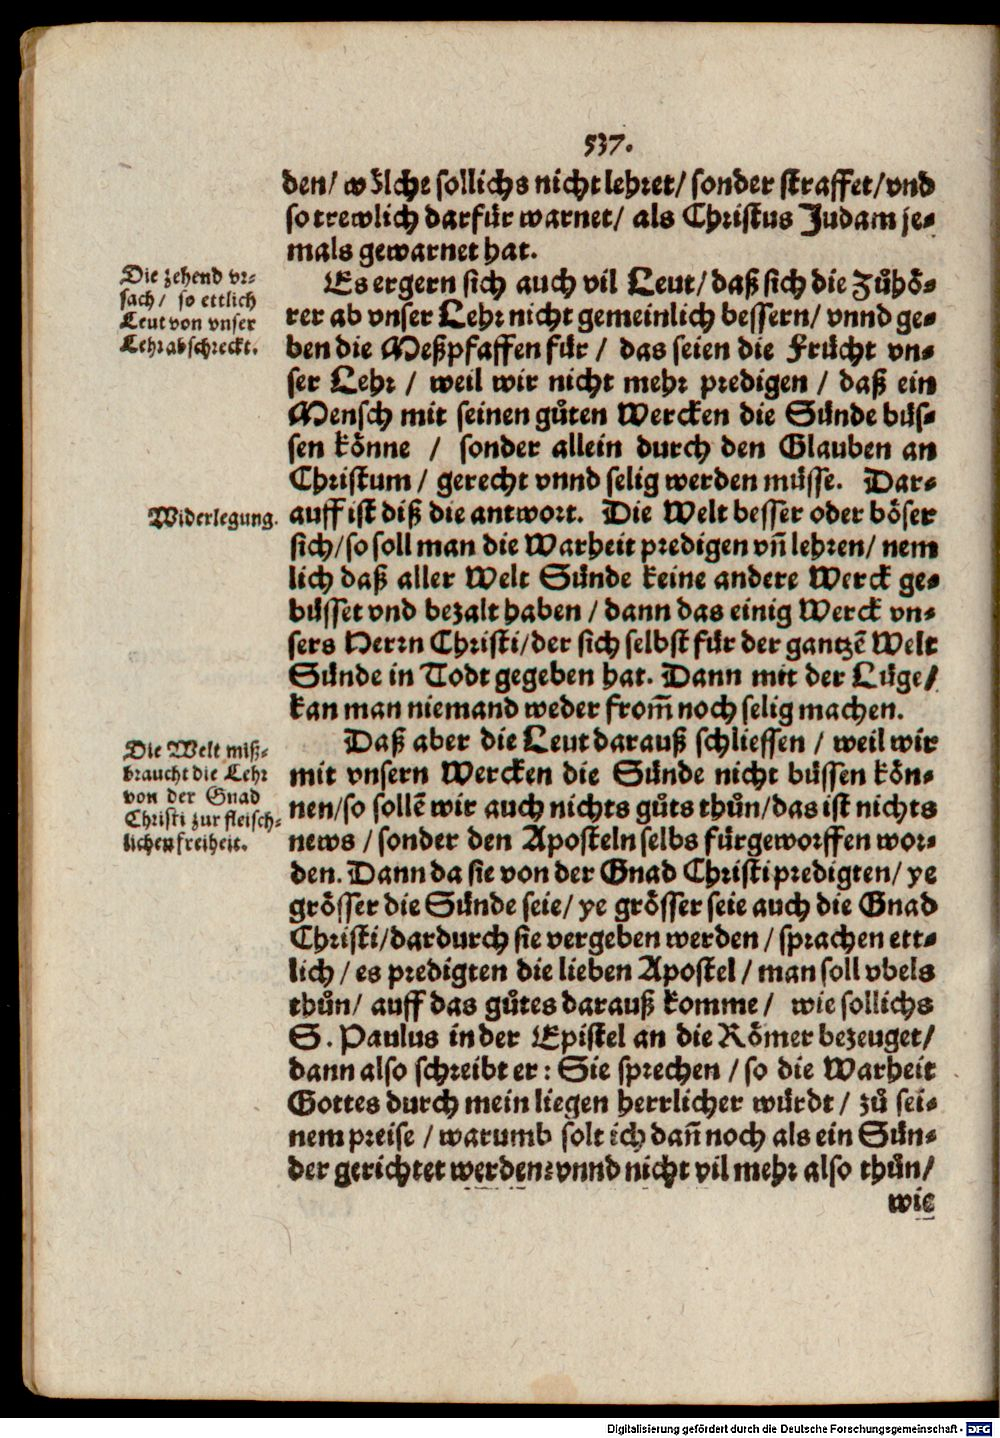 537.
den/ wölche sollichs nicht lehret/ sonder straffet/ vnd
so trewlich darfür warnet/ als Christus Judam je-
mals gewarnet hat.
Die zehend vr-
sach/ so ettlich
Leut von vnser
Lehr abschreckt.
Es ergern sich auch vil Leut/ daß sich die Zůhö-
rer ab vnser Lehr nicht gemeinlich bessern/ vnnd ge-
ben die Meßpfaffen für / das seien die Frücht vn-
ser Lehr / weil wir nicht mehr predigen / daß ein
Mensch mit seinen gůten Wercken die Sünde büs-
sen könne / sonder allein durch den Glauben an
Christum / gerecht vnnd selig werden müsse. Dar-
Widerlegung.
auff ist diß die antwort. Die Welt besser oder böser
sich/ so soll man die Warheit predigen vñ lehren/ nem
lich daß aller Welt Sünde keine andere Werck ge-
büsset vnd bezalt haben / dann das einig Werck vn-
sers Herrn Christi/ der sich selbst für der gantzẽ Welt
Sünde in Todt gegeben hat. Dann mit der Lüge/
kan man niemand weder from̃ noch selig machen.
Die Welt miß-
braucht die Lehr
von der Gnad
Christi zur fleisch-
lichen freiheit.
Daß aber die Leut darauß schliessen / weil wir
mit vnsern Wercken die Sünde nicht büssen kön-
nen/ so sollẽ wir auch nichts gůts thůn/ das ist nichts
news / sonder den Aposteln selbs fürgeworffen wor-
den. Dann da sie von der Gnad Christi predigten/ ye
grösser die Sünde seie/ ye grösser seie auch die Gnad
Christi/ dardurch sie vergeben werden / sprachen ett-
lich / es predigten die lieben Apostel / man soll vbels
thůn/ auff das gůtes darauß komme / wie sollichs
S. Paulus in der Epistel an die Römer bezeuget/
dann also schreibt er: Sie sprechen / so die Warheit
Gottes durch mein liegen herrlicher würdt / zů sei-
nem preise / warumb solt ich dañ noch als ein Sün-
der gerichtet werden? vnnd nicht vil mehr also thůn/
wie
Digitalisierung gefördert durch die Deutsche Forschungsgemeinschaft - DFG